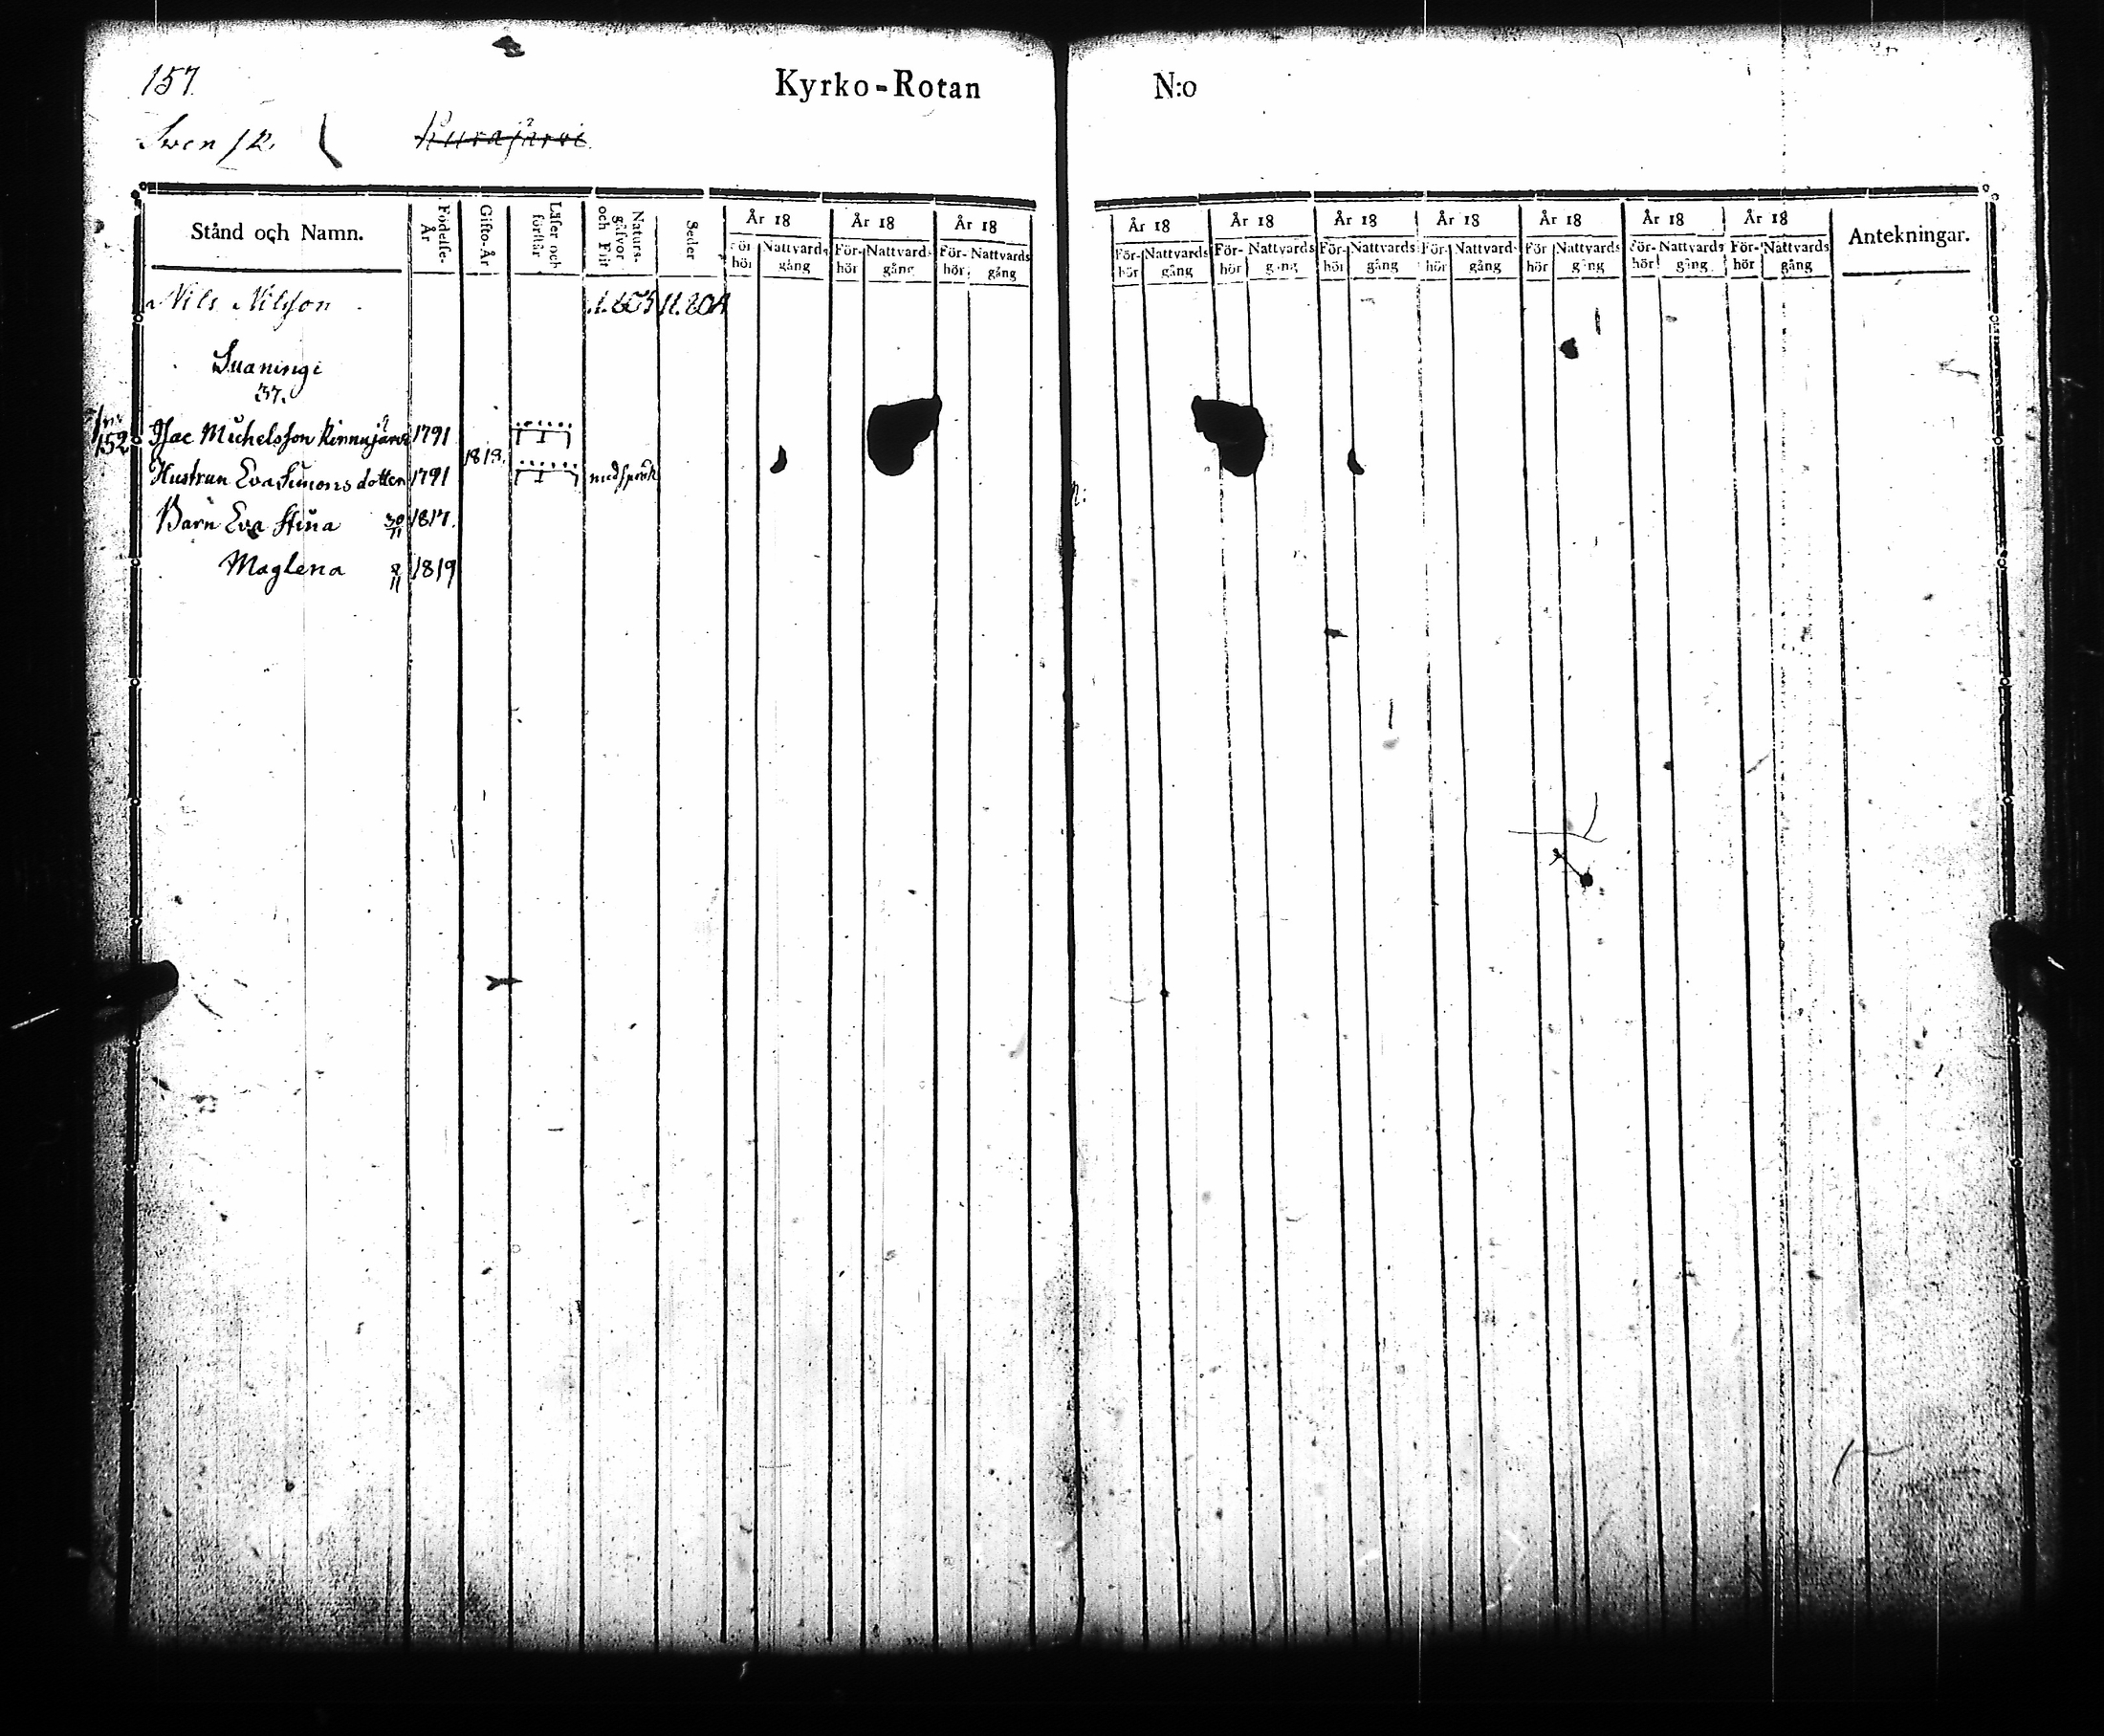 157.
Kyrko-Rotan N:o
Kurajärvi
Stånd och Namn.
Födelse-År
Gifto-År
Läser och förstår
Naturs-gåfvor och Flit
Seder
År 18 År 18 År 18 År 18 År 18 År 18 År 18 År 18 År 18 År 18
För-hör Nattvards gång För-hör Nattvards gång För-hör Nattvards gång För-hör Nattvards gång För-hör Nattvards gång För-hör Nattvards gång För-hör Nattvards gång För-hör Nattvards gång För-hör Nattvards gång För-hör Nattvards gång
Antekningar.
Nils Nilsson
Suaningi
37.
152
Isac Michelsson Rinnujärvi 1791
1813.
Hustrun Eva Simonsdotter 1791
Barn Eva Stina 30/11 1817.
Maglena 8/11 1819